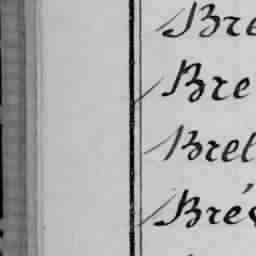 Bre
Bre
Brel
Bré